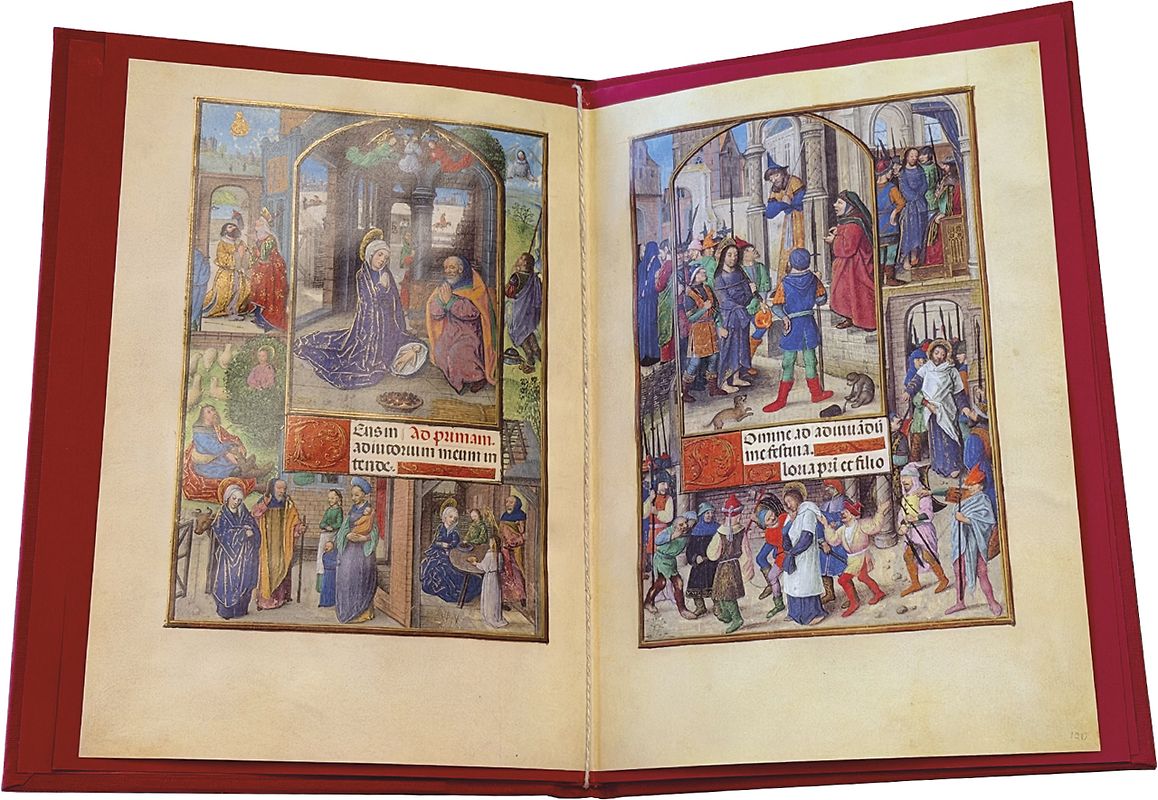 Eus in Ad primam.
adiutorium meum in
tende.
Domine ad adiuuādū
me festina.
loria pr̄i et filio
120